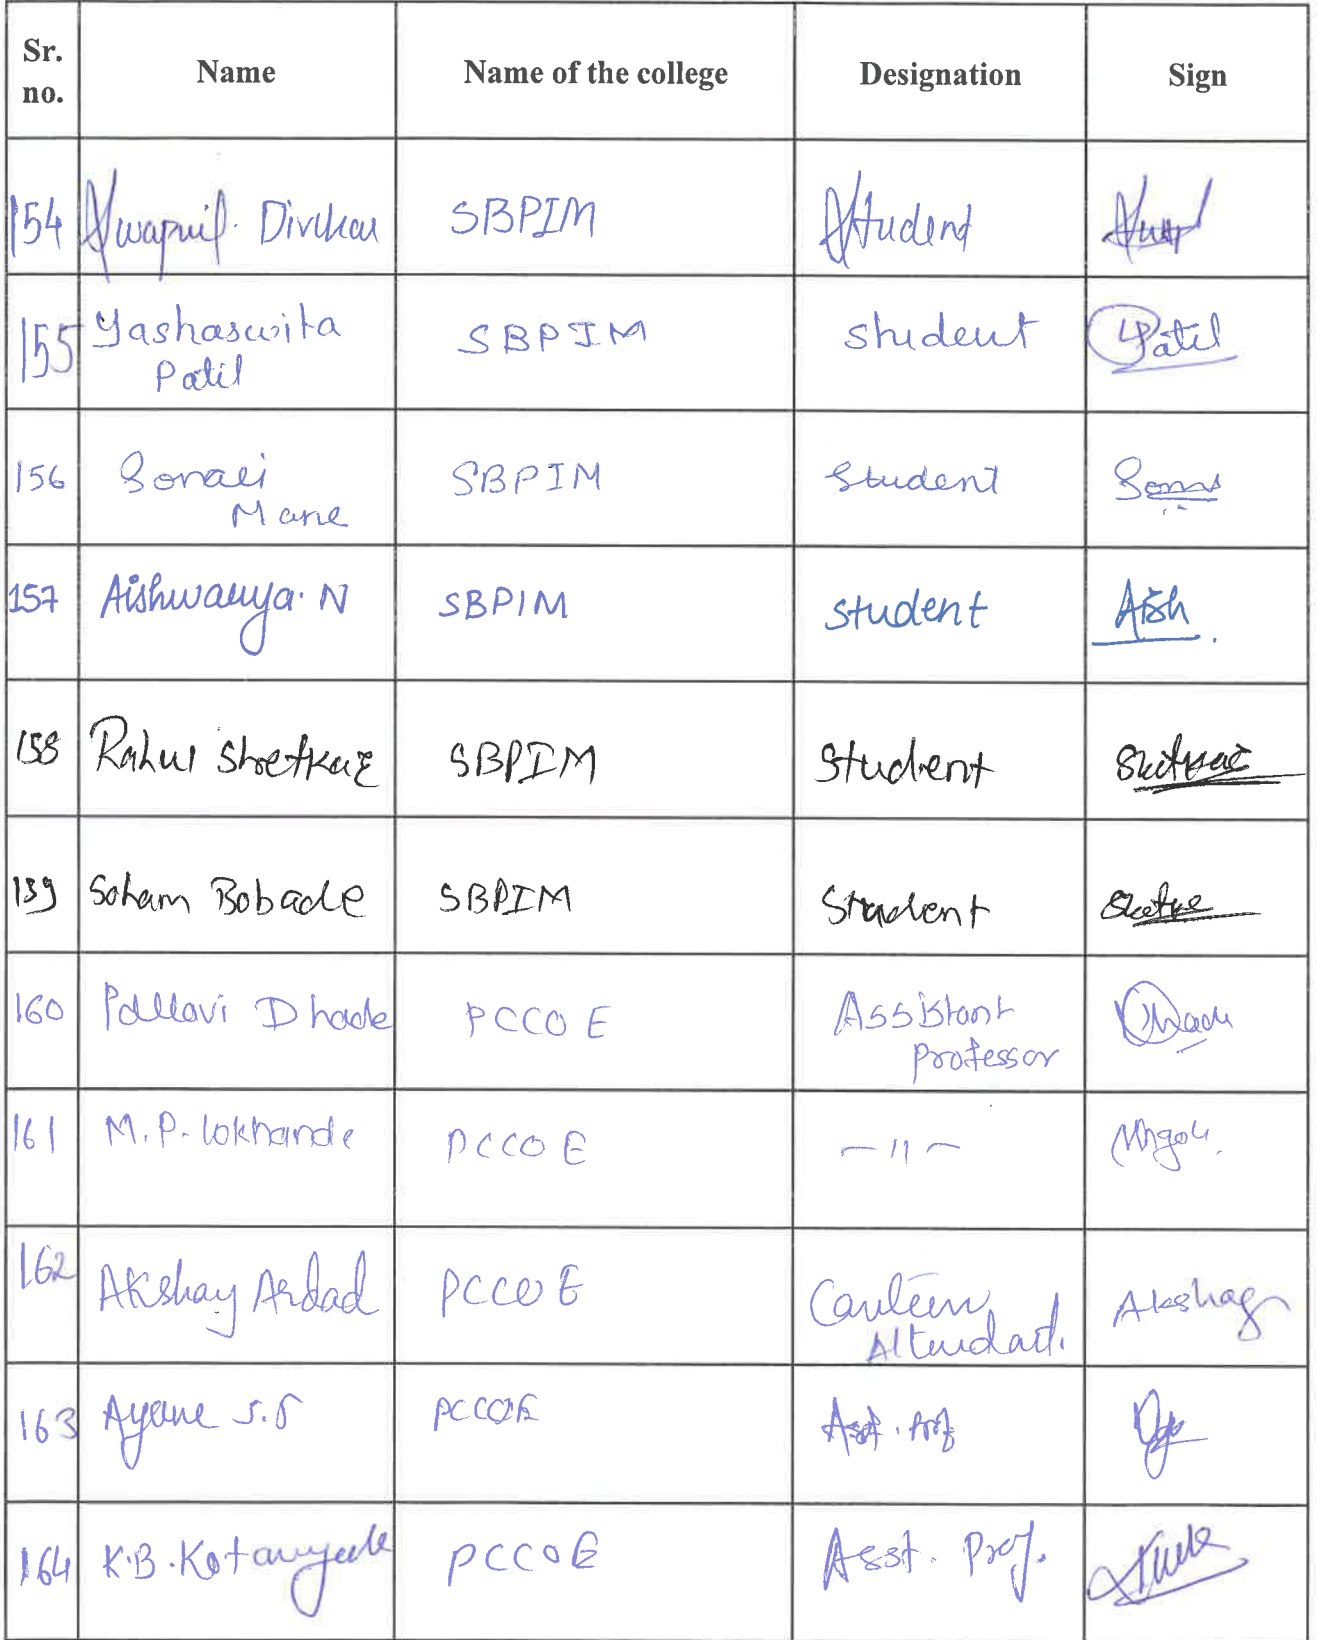 Sr. no. Name Name of the college Designation Sign
154 Swapnil. Divekar SBPIM Student
155 Yashaswita SBPIM student Patil
Patil
156 Sonali SBPIM Student
Mane
157 Aishwarya. N SBPIM student Aish
158 Rahul Shetkar SBPIM Student
159 Soham Bobade SBPIM Student
160 Pallavi Dhade PCCOE Assistant
Professor
161 M. P. Lokhande PCCOE -11-
162 Akshay Ardad PCCOE Canteen Akshay
163 S.S PCCOE Asst. Prof
164 K.B. PCCOE Asst. Prof.